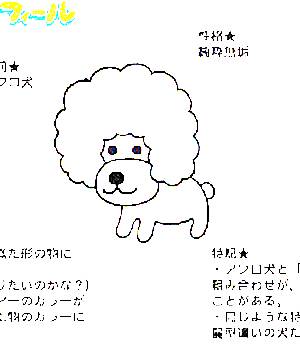 フィール
性格★
純粋無垢
前★
フロ犬
似た形の物に
りたいのかな?)
ィーのカラーが
た物のカラーに
特記★
・アフロ犬と「
組み合わせが、
ことがある。
・同じような特
髪型違いの犬た